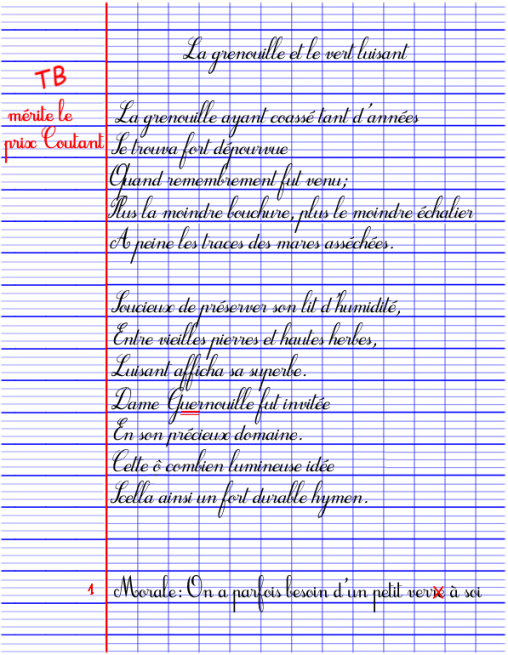 La grenouille et le vert luisant
TB
mérite le
prix Coutant
La grenouille ayant coassé tant d'années
Se trouva fort dépourvue
Quand remembrement fut venu;
Plus la moindre bouchure, plus le moindre échalier
A peine les traces des mares asséchées.
Soucieux de préserver son lit d'humidité,
Entre vieilles pierres et hautes herbes,
Luisant afficha sa superbe.
Dame Guernouille fut invitée
En son précieux domaine.
Cette ô combien lumineuse idée
Scella ainsi un fort durable hymen.
1 Morale: On a parfois besoin d'un petit verre à soi